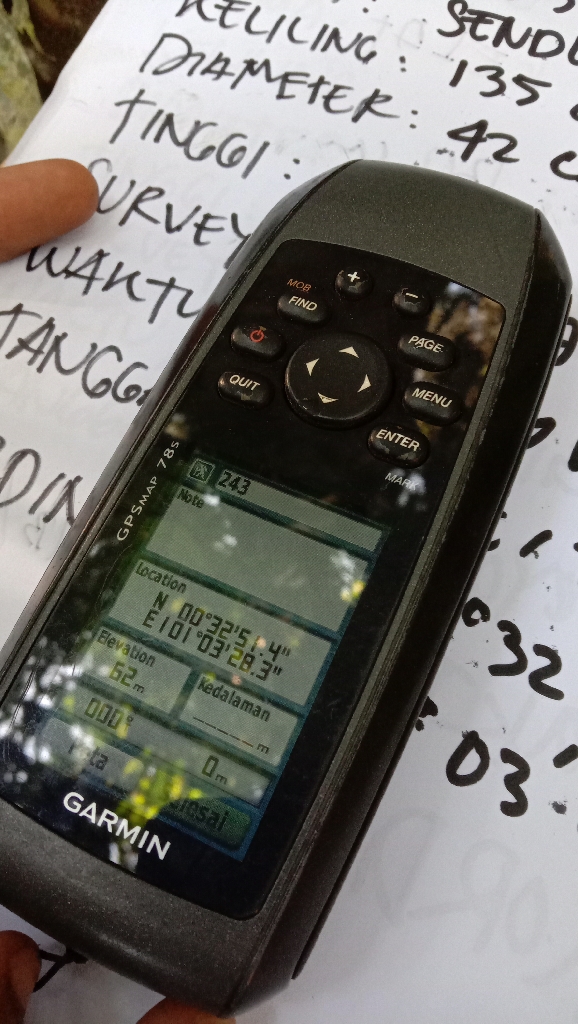 KELILING : 135
DIAMETER : 42
TINGGI :
SURVEY
WAKTU
MOB
FIND
+
-
PAGE
QUIT
MENU
ENTER
MARK
GPSMAP 78s
243
Note
Location
N 00°32'51.4"
E101°03'28.3"
Elevation
62m
Kedalaman
_____m
000°
0m
GARMIN
°32
03'